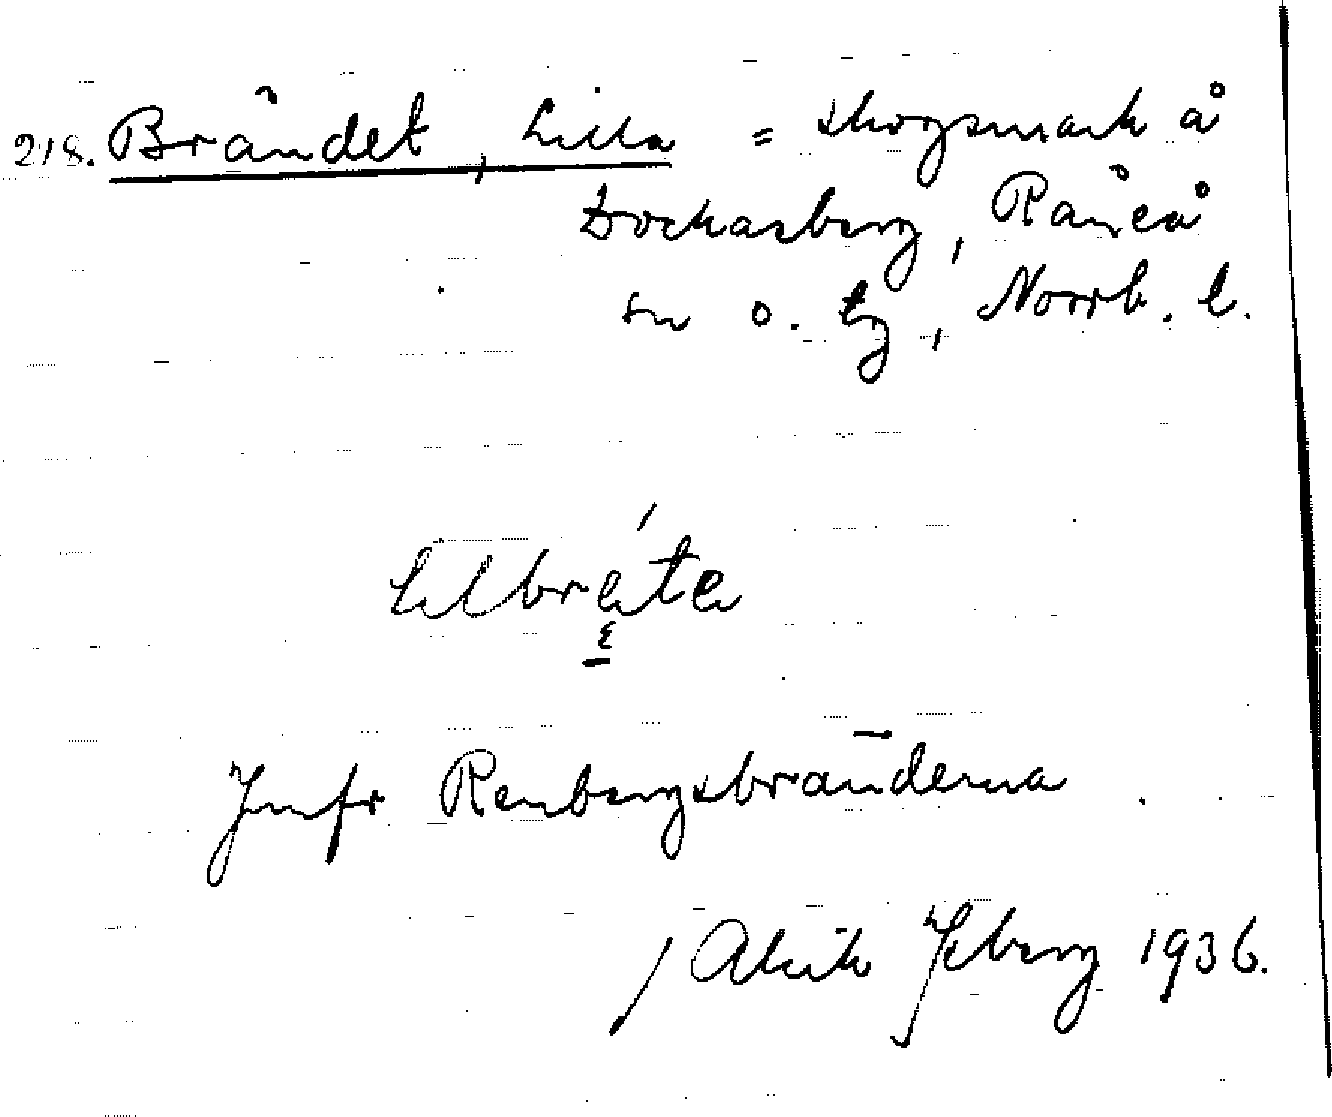 218. Brändet, Lilla = skogsmark å
Dockasberg, Råneå
sn o. tg, Norrb. l.
lilbréta
Jmfr Renbergsbränderna.
/ Alrik Isberg 1936.